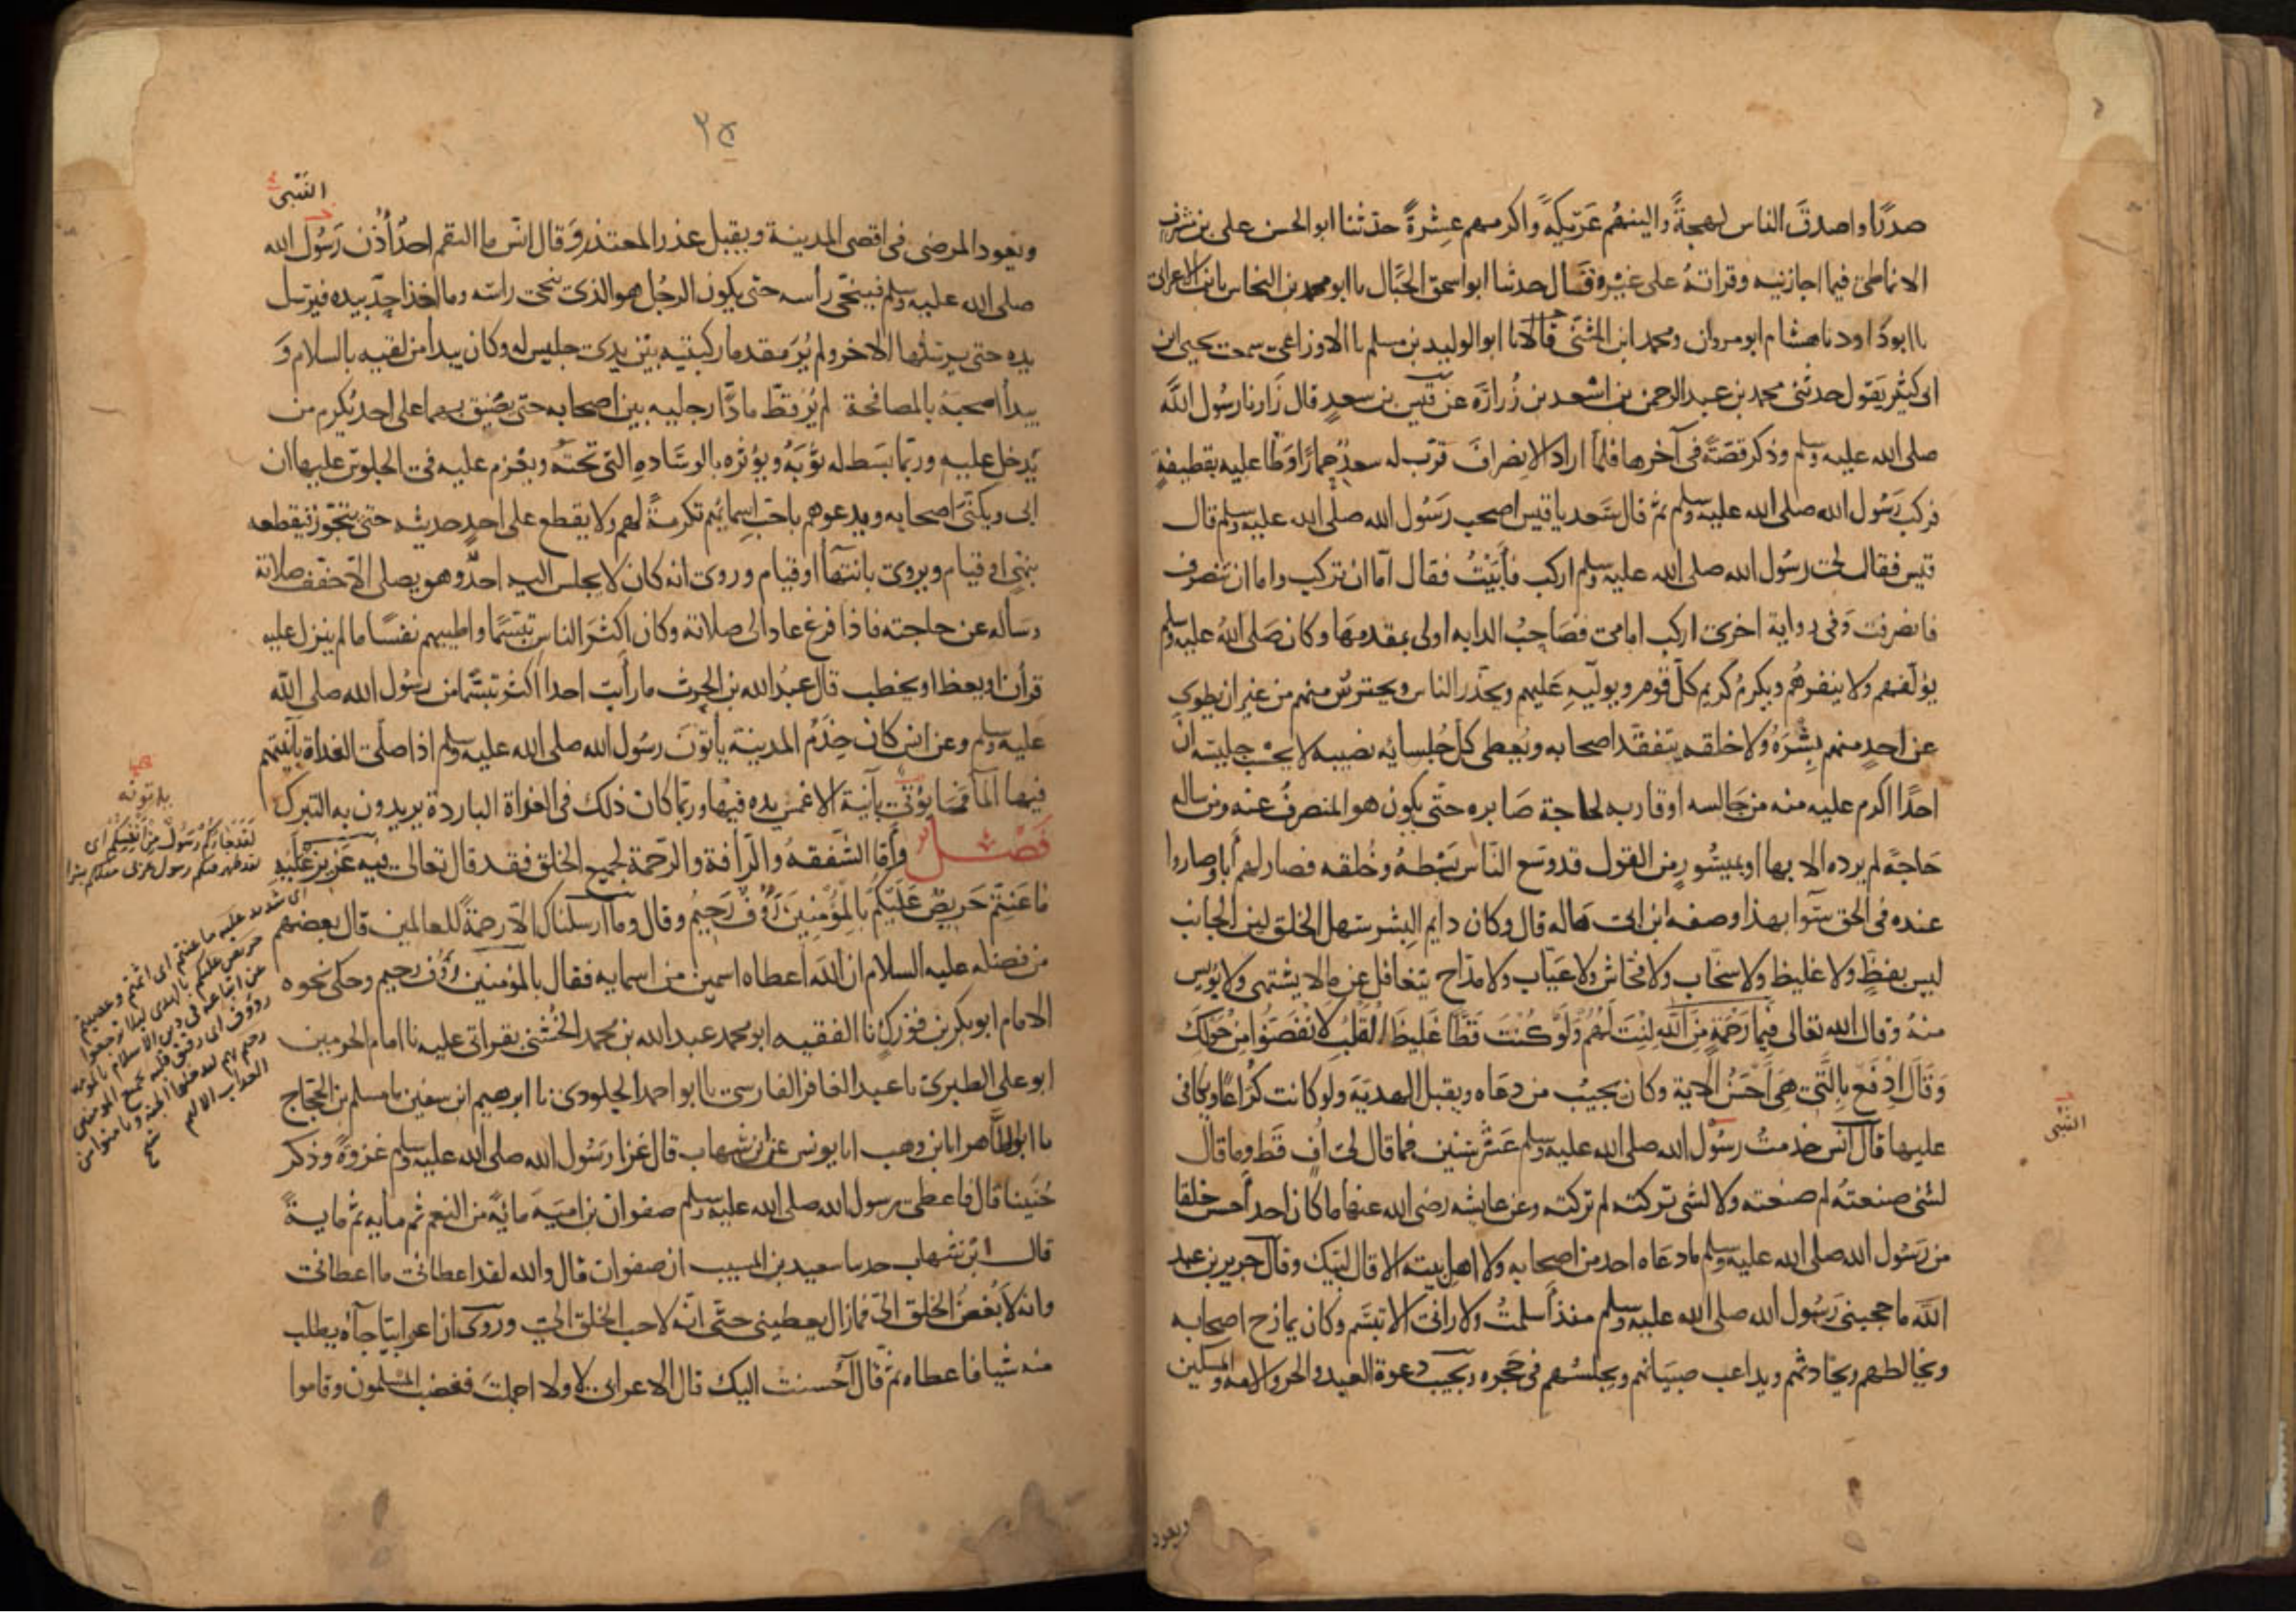 صدرًا واصدقَ الناس لهجةً والينهُم عَرِيكةً واكرمهم عِشْرةً حدثنا ابو الحسن على بن مشرف
الانماطى فيما اجازنيه وقراتهُ على غيره قال حدثنا ابو اسحق الحَبّال نا ابو محمد بن النحاس نا ابن الاعرابى
نا ابو داود نا هشام ابو مروان ومحمد ابن المثنى قالا نا ابو الوليد بن مسلم نا الاوزاعى سمعت يحيى ابن
ابى كثير يقول حدثنى محمد بن عبد الرحمن بن اسعد بن زُرارَة عن قيس بن سعدٍ قال زَارنا رسُول الله
صلى الله عليه وسلم وذكر قصّةً فى آخرها فلمّا اراد الانصرافَ قرّب له سعدٌ حِمارًا وَطّا عليه بقطيفةٍ
فركب رَسُول الله صلى الله عليه وسلم ثم قال سَعد يا قيس اصحب رَسُول الله صلى الله عليه وسلم قال
قيس فقال لى رسُول الله صلى الله عليه وسلم اركب فأبَيْتُ فقال امّا ان تركب واما ان تنصرف
فانصرفت وَفى رواية اخرى اركب امامى فصَاحبُ الدابه اولى بمقدمهَا وكان صَلى اللهُ عليه وسلم
يؤلفهم ولا ينفرهُم ويكرمُ كريم كلّ قوم ويوليّهِ عَليهم ويحذّر الناس ويحترسُ منهم من غير ان يطوى
عن احدٍ منهم بِشْرَهُ ولا خلقه يتفقد اصحابه ويُعطى كلّ جُلسائه نصيبه لا يحْسب جليسُه انّ
احدًا اكرم عليه منه من جَالسه او قاربه لحاجة صَابره حتّى يكون هو المنصرفُ عنه ومن ساله
حَاجةً لم يرده الا بها او بميسُورٍ من القول قد وسَع النّاس بَسْطهُ وخُلقه فصار لهم أبا وصاروا
عنده فى الحق سَوآ بهذا وصفه ابن ابى هاله قال وكان دايم البِشر سَهل الخلق لين الجانب
ليس بفظٍّ ولا غليظ ولا سخّاب ولا فحّاش ولا عَيّاب ولا مدّاح يتغافل عن ما لا يشتهى ولا يؤيس
منهُ وقال الله تعالى فَبِما رَحْمَةٍ مِنَ اللهِ لِنْتَ لَهُم وَلَوْ كُنْتَ فَظّا غَليظَ القَلْبِ لانْفَضّوا مِنْ حَوْلكَ
وَقالَ ادْفَع بِالّتى هِىَ أحْسَنُ الآية وكان يجيبُ من دعَاه ويقبل الهديّة ولو كانت كُرَاعًا ويكافى
عليها قال انَس خدمتُ رسُول الله صلى الله عليه وسلم عَشْرَ سنين فما قال لى أُفٍ قَط وما قال
لشئ صنعتهُ لم صنعته ولا لشى تركته لم تركته وعن عايشه رضى الله عنها ما كان احد أحسن خلقا
من رَسُول الله صلى الله عليه وسلم ما دعَاه احد من اصحابه ولا اهل بيته الا قال لبّيك وقال جرير بن عبد
الله ما حجبنى رَسُول الله صلى الله عليه وسلم منذُ أسلمتُ ولا رانى الا تبسّم وكان يمازح اصحابه
ويخالطهم ويحادثهم ويداعب صبيَانهم ويجلسُهم فى حَجره ويجيب دعوة العبد والحر والامه والمسكين
النبى
ويعود
٢٥
النبى
ويعود المرضى فى اقصى المدينة ويقبل عذر المعتذر وَقال انس ما التقم احدٌ أُذُن رَسُول الله
صلى الله عليه وسلم فينحّى رأسه حتى يكون الرجُل هو الذى ينحى راسَه وما اخذ احد بيده فيرسل
يده حتى يرسلها الاخر ولم يُرَ مقدما ركبتيه بين يدى جليس له وكان يبدأ من لقيه بالسلام وَ
يبدأ اصحابه بالمصافحة لم يُرَ قطّ مادًّا رجليه بين اصحابه حتى يضيق بهما على احد يُكرم من
يَدخل عليه وربّما بسَط له ثوبَهُ ويؤثره بالوسَاده التى تحته ويعْزم عليه فى الجلوس عليها ان
ابى ويكنّى اصحابه ويدعوهم باحبّ اسمائهم تكرمةً لهم ولا يقطع على احدٍ حديثه حتى يتجوّز فيقطعه
بنهىٍ او قيام ويروى بانتهآ او قيام وروى انه كان لا يجلس اليه احدٌ وهو يصلى الا خفف صلاته
وساله عن حاجته فاذا فرغ عاد الى صلاته وكان اكثَر الناس تبسّمًا واطيبهم نفسًا ما لم ينزل عليه
قرآن او يعظ او يخطب قال عبدُ الله بن الحرث ما رأيت احدا اكثر تبسّما من رسُول الله صلى الله
عليه وسلم وعن انس كان خدَمُ المدينة يأتونَ رسُول الله صلى الله عليه وسلم اذا صلّى الغداة بآنيتهم
فيها المآ فما يؤتى بآنية الا غمس يده فيها وربّما كان ذلك فى الغداة الباردة يريدون به التبرك
فَصْل وأمّا الشفقهُ والرّأفة والرحمة لجميع الخلق فقد قال تعالى فيه عَزِيزٌ عَلَيْهِ
مَا عَنِتّم حَرِيصٌ عَلَيْكُمْ بِالْمُؤْمِنِينَ رَؤُفٌ رَحِيمٌ وقال وما أرسلناك الا رحمةً للعالمين قال بعضهم
من فضله عليه السلام ان الله اعطاه اسمين من اسمايه فقال بالمؤمنين رؤف رحيم وحكى نحوه
الامام ابو بكر بن فورك نا الفقيه ابو محمد عبد الله بن محمد الخُشنى بقراتى عليه نا امام الحرمين
ابو على الطبرى نا عبد الغافر الفارسى نا ابو احمد الجلودى نا ابرهيم ابن سفين نا مسلم بن الحجاج
نا ابو الطّاهر انا بن وهب انا يونس عن ابن شهاب قال غزا رَسُول الله صلى الله عليه وسلم غزوةً وذكر
حُنَينا قال فاعطى رسول الله صلى الله عليه وسلم صفوان بن اميّة مائةً من النعم ثم مايه ثم مايةً
قال ابن شهاب حدثنا سعيد بن المسيب ان صفوان قال والله لقد اعطانى ما اعطانى
وانه لأَبْغضُ الخلق الىّ فما زال يعطينى حتّى انّه لاحب الخلق الىّ وروى ان اعرابيّا جآه يطلب
منه شيا فاعطاه ثمّ قال آحسنت اليك قال الاعرابى لا ولا اجملتَ فغضب المسلمون وقاموا
لَقَدْ جَاءَكُمْ رَسُولٌ مِنْ أنفُسِكُم اى
شديد عليه ما عنتم اى اثمتم وعصيتم
حريص عليكم بالهدى
رؤوف اى رفيق قلبه بجميع المومنين
العذاب الاليم